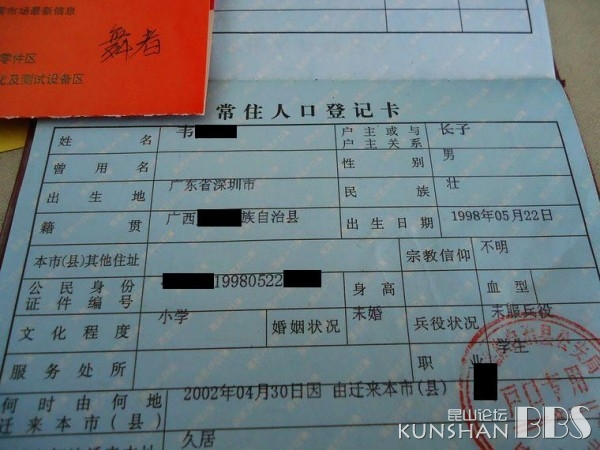 需市场最新信息
舞者
零件区
化及测试设备区
常住人口登记卡
姓名 韦 户主或与户主关系 长子
曾用名 性别 男
出生地 广东省深圳市 民族 壮
籍贯 广西 族自治县 出生日期 1998年05月22日
本市(县)其他住址 宗教信仰 不明
公民身份证件编号 19980522 身高 血型
文化程度 小学 婚姻状况 未婚 兵役状况 未服兵役
服务处所 职业 学生
何时由何地迁来本市(县) 2002年04月30日因 由迁来本市(县)
久居
昆山论坛
KUNSHAN BBS